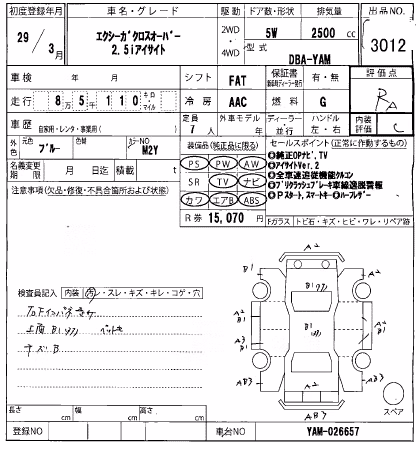 初度登録年月 車名・グレード 駆動 ドア数・形状 排気量 出品NO.
29年 3月 エクシーガクロスオーバー 2WD・4WD 5W 2500cc 3012
2.5iアイサイト 型式 DBA-YAM
車検 年 月 シフト FAT 保証書 有・無 評価点
走行 8万5千110 キロ・マイル 冷房 AAC 燃料 G RA
車歴 自家用・レンタ・事業用( ) 定員 7人 外車モデル 年 ディーラー・並行 ハンドル 左・右 内装評価 C
外色 元色 ブルー 色替 カラーNO M2Y 装備品(純正品に限る) セールスポイント(正常に動作するもの)
名義変更期限 月 日迄 積載 t PS PW AW
◎純正OPナビ,TV
◎アイサイトVer.2
注意事項(欠品・修復・不具合箇所および状態) SR TV ナビ
◎全車速追従機能クルコン
◎ブリクラッシュブレーキ車線逸脱警報
カワ エアB ABS
◎Pスタート,スマートキー◎ルーフレザー
R券 15,070円 Fガラス トビ石・キズ・ヒビ・ワレ・リペア跡
検査員記入 内装 ・スレ・キズ・キレ・コゲ・穴
キズB
A2
B1 A2
B1ワク
A2 B1 A2
A3 B1 ワク A3 B1
AB3 AB3
A2
AB3
スペア
長さ cm 幅 cm 高さ cm
登録NO 車台NO YAM-026657